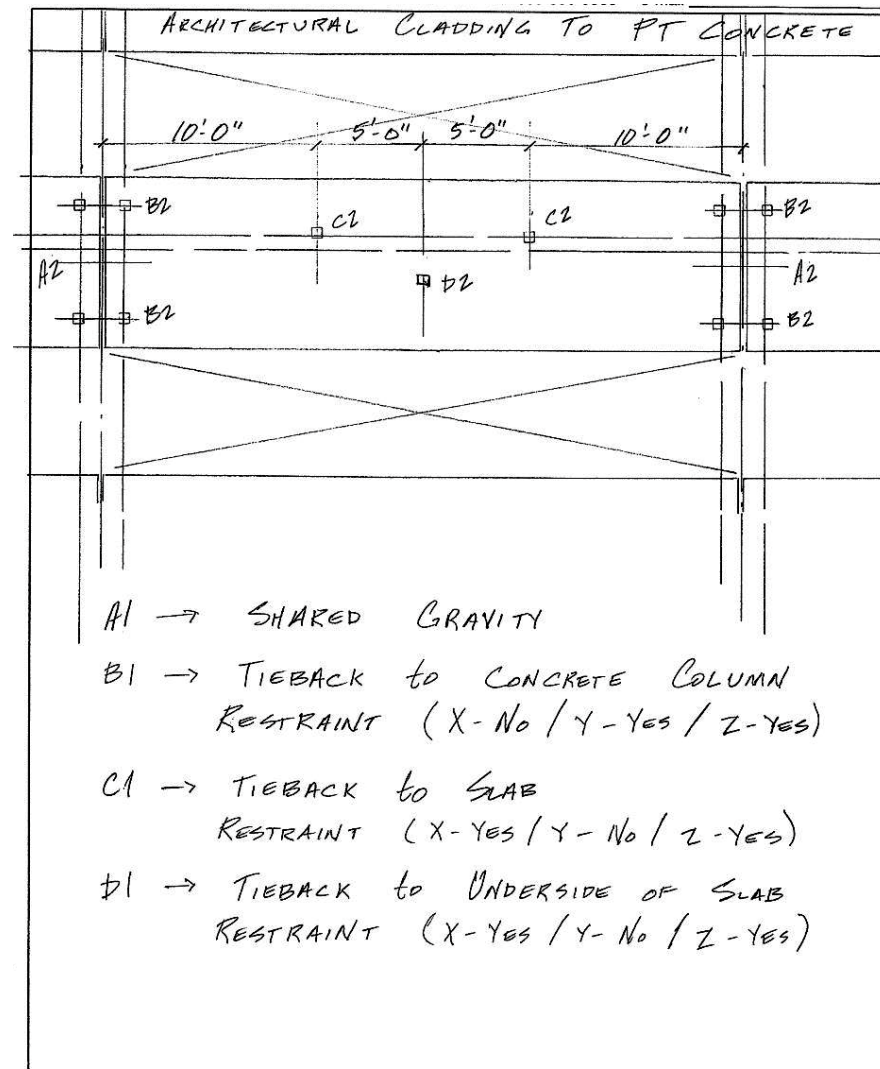 ARCHITECTURAL CLADDING TO PT CONCRETE
10'-0" 5'-0" 5'-0" 10'-0"
B2 C2 C2 B2
A2 D2 A2
B2 B2
A1 → SHARED GRAVITY
B1 → TIEBACK to CONCRETE COLUMN
RESTRAINT (X-NO / Y-YES / Z-YES)
C1 → TIEBACK to SLAB
RESTRAINT (X-YES / Y-NO / Z-YES)
D1 → TIEBACK to UNDERSIDE OF SLAB
RESTRAINT (X-YES / Y-NO / Z-YES)